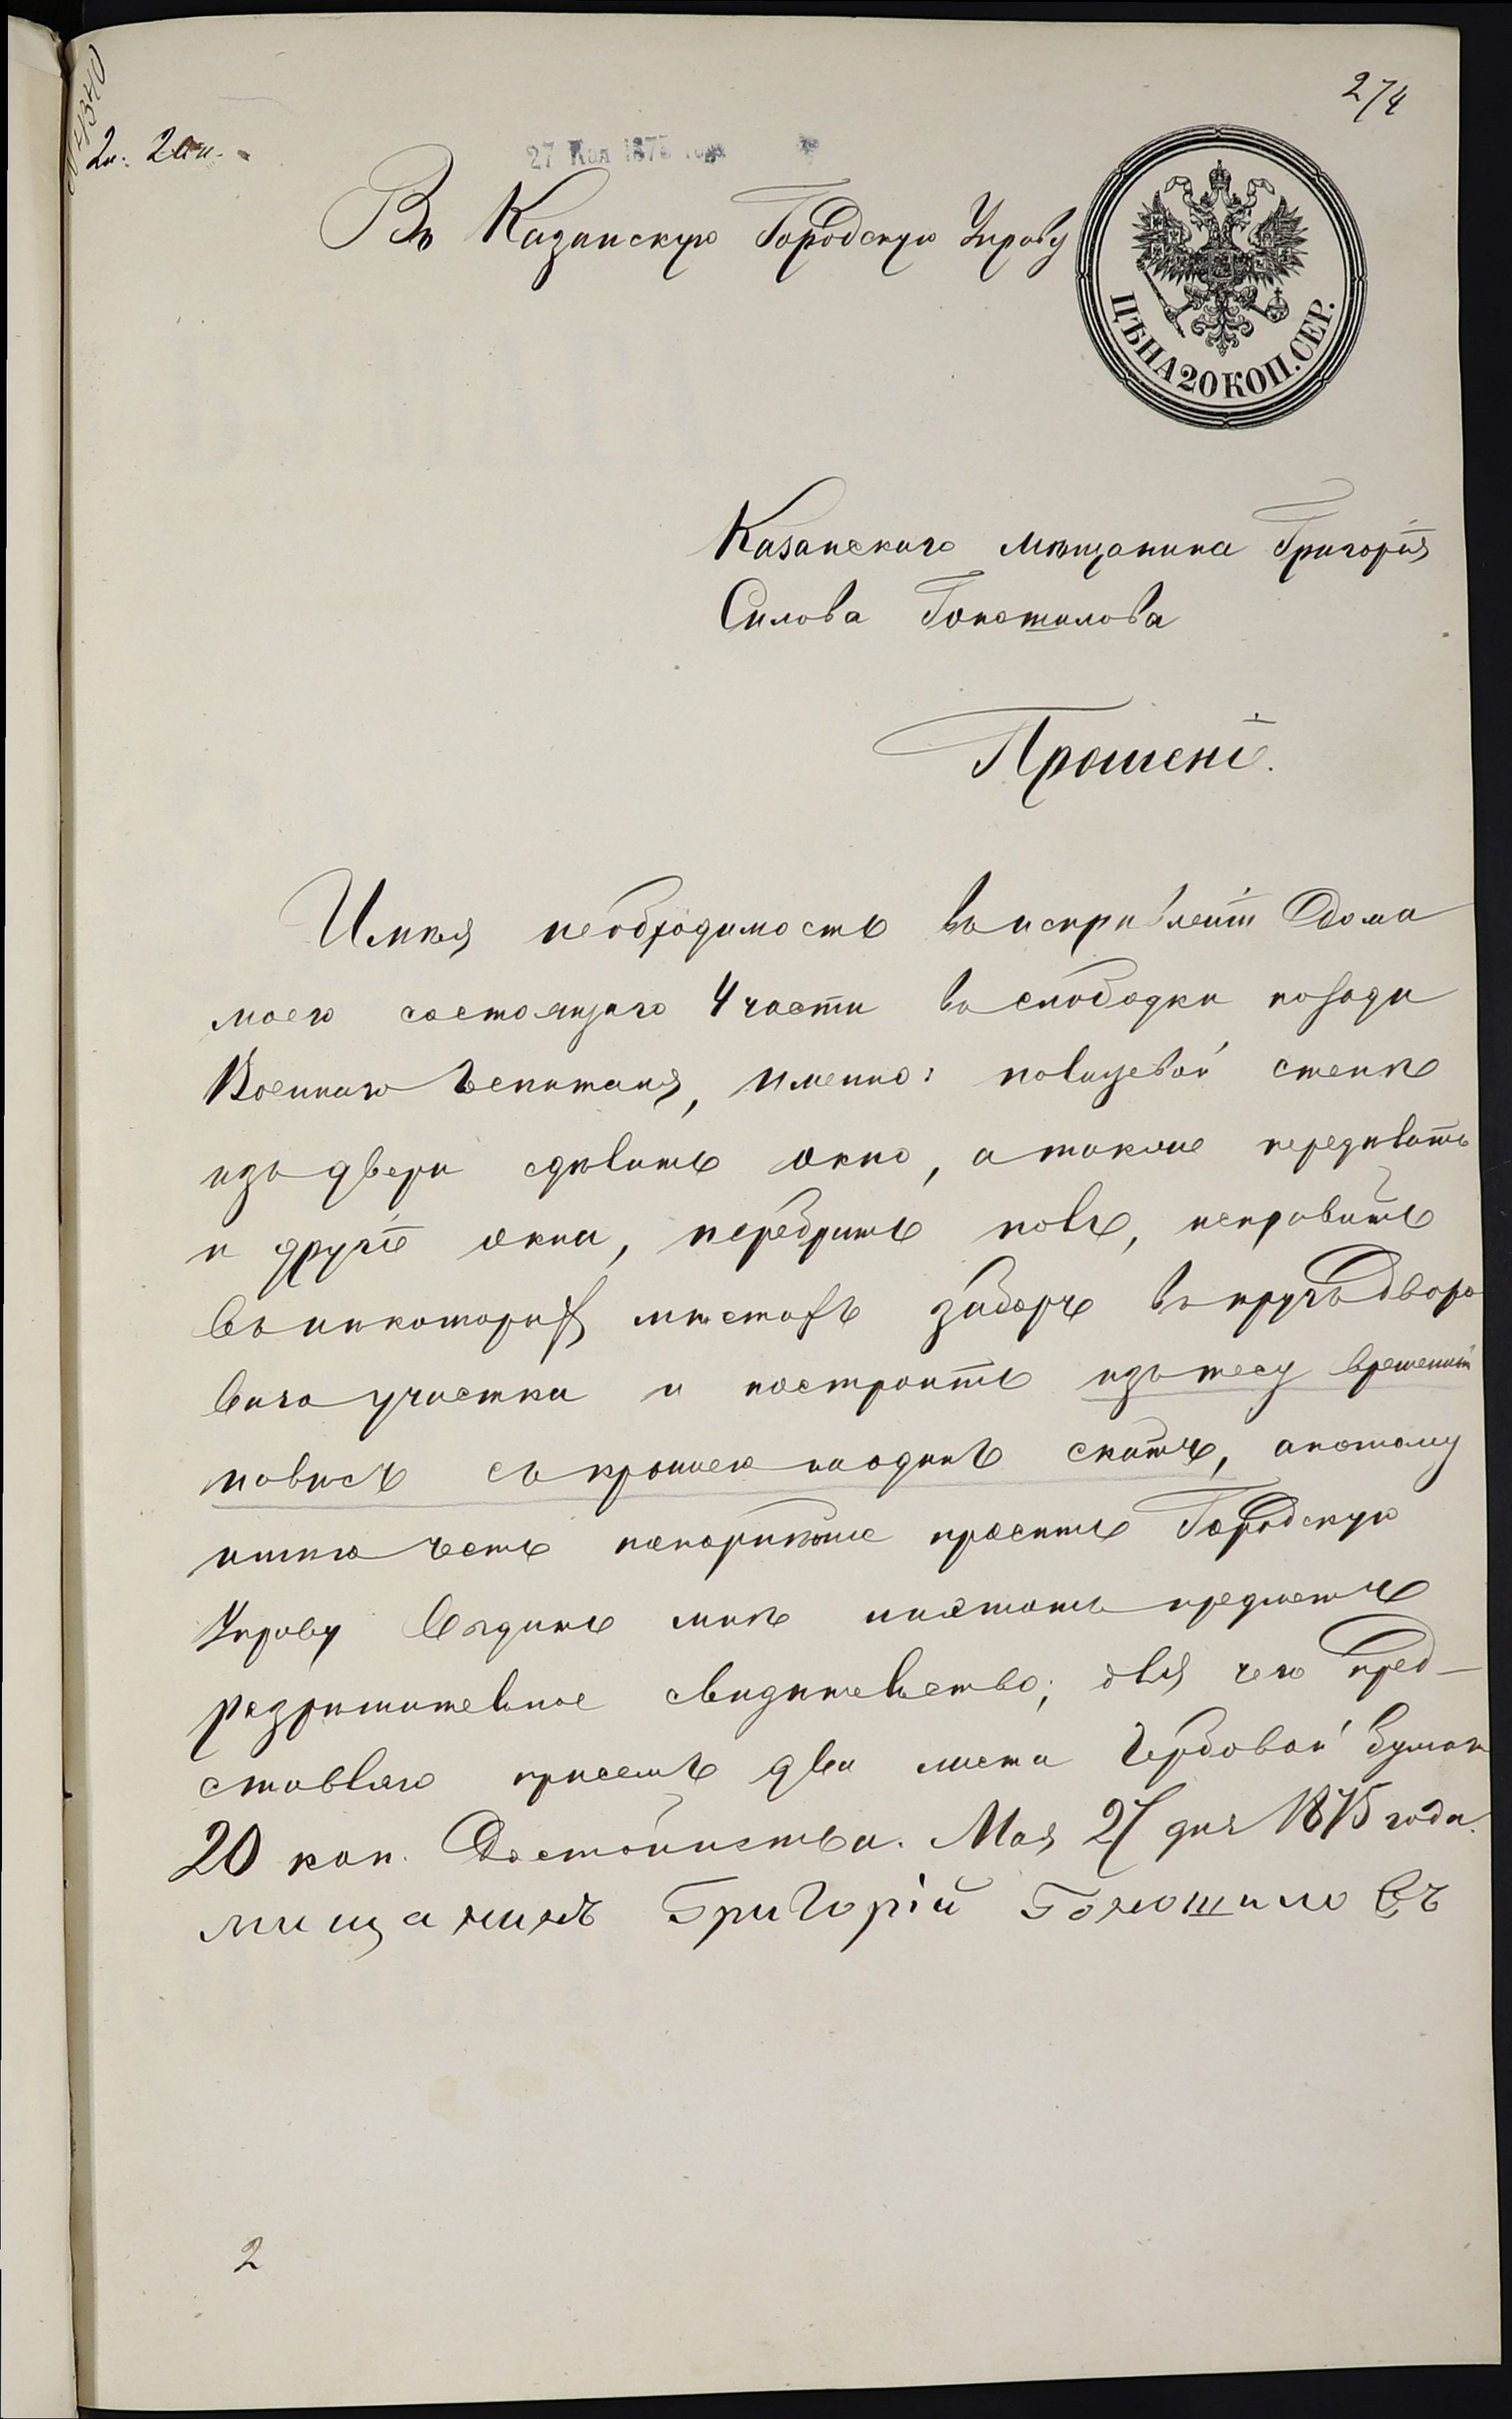 274
№ 4340
2л. 20 к.
27 Мая 1875 года
Въ Казанскую Городскую Управу
ЦѢНА 20 КОП. СЕР.
Казанскаго мѣщанина Григорія
Силова Гоношилова
Прошеніе.
Имѣя необходимость въ исправленіи дома
моего состоящаго 4 части въ слободки позади
Военнаго Гошпиталя, именно: по лицевой стенѣ
изъ двери сдѣлать окно, а также переделать
и другіе окна, перебрать полъ, исправить
въ нѣкоторых мѣстахъ заборъ въ кругъ дворо
ваго участка и построить изъ тесу временный
навесъ съ крышею на одинъ скатъ, а потому
имѣю честь покорнѣйше просить Городскую
Управу выдать мнѣ на этотъ предметъ
разрѣшительное свидѣтельство; для чего пред-
ставляю при семъ два листа Гербовой бумаги
20 коп. достоинства. Мая 27 дня 1875 года.
мищанинъ Григорій Гоношиловъ
2